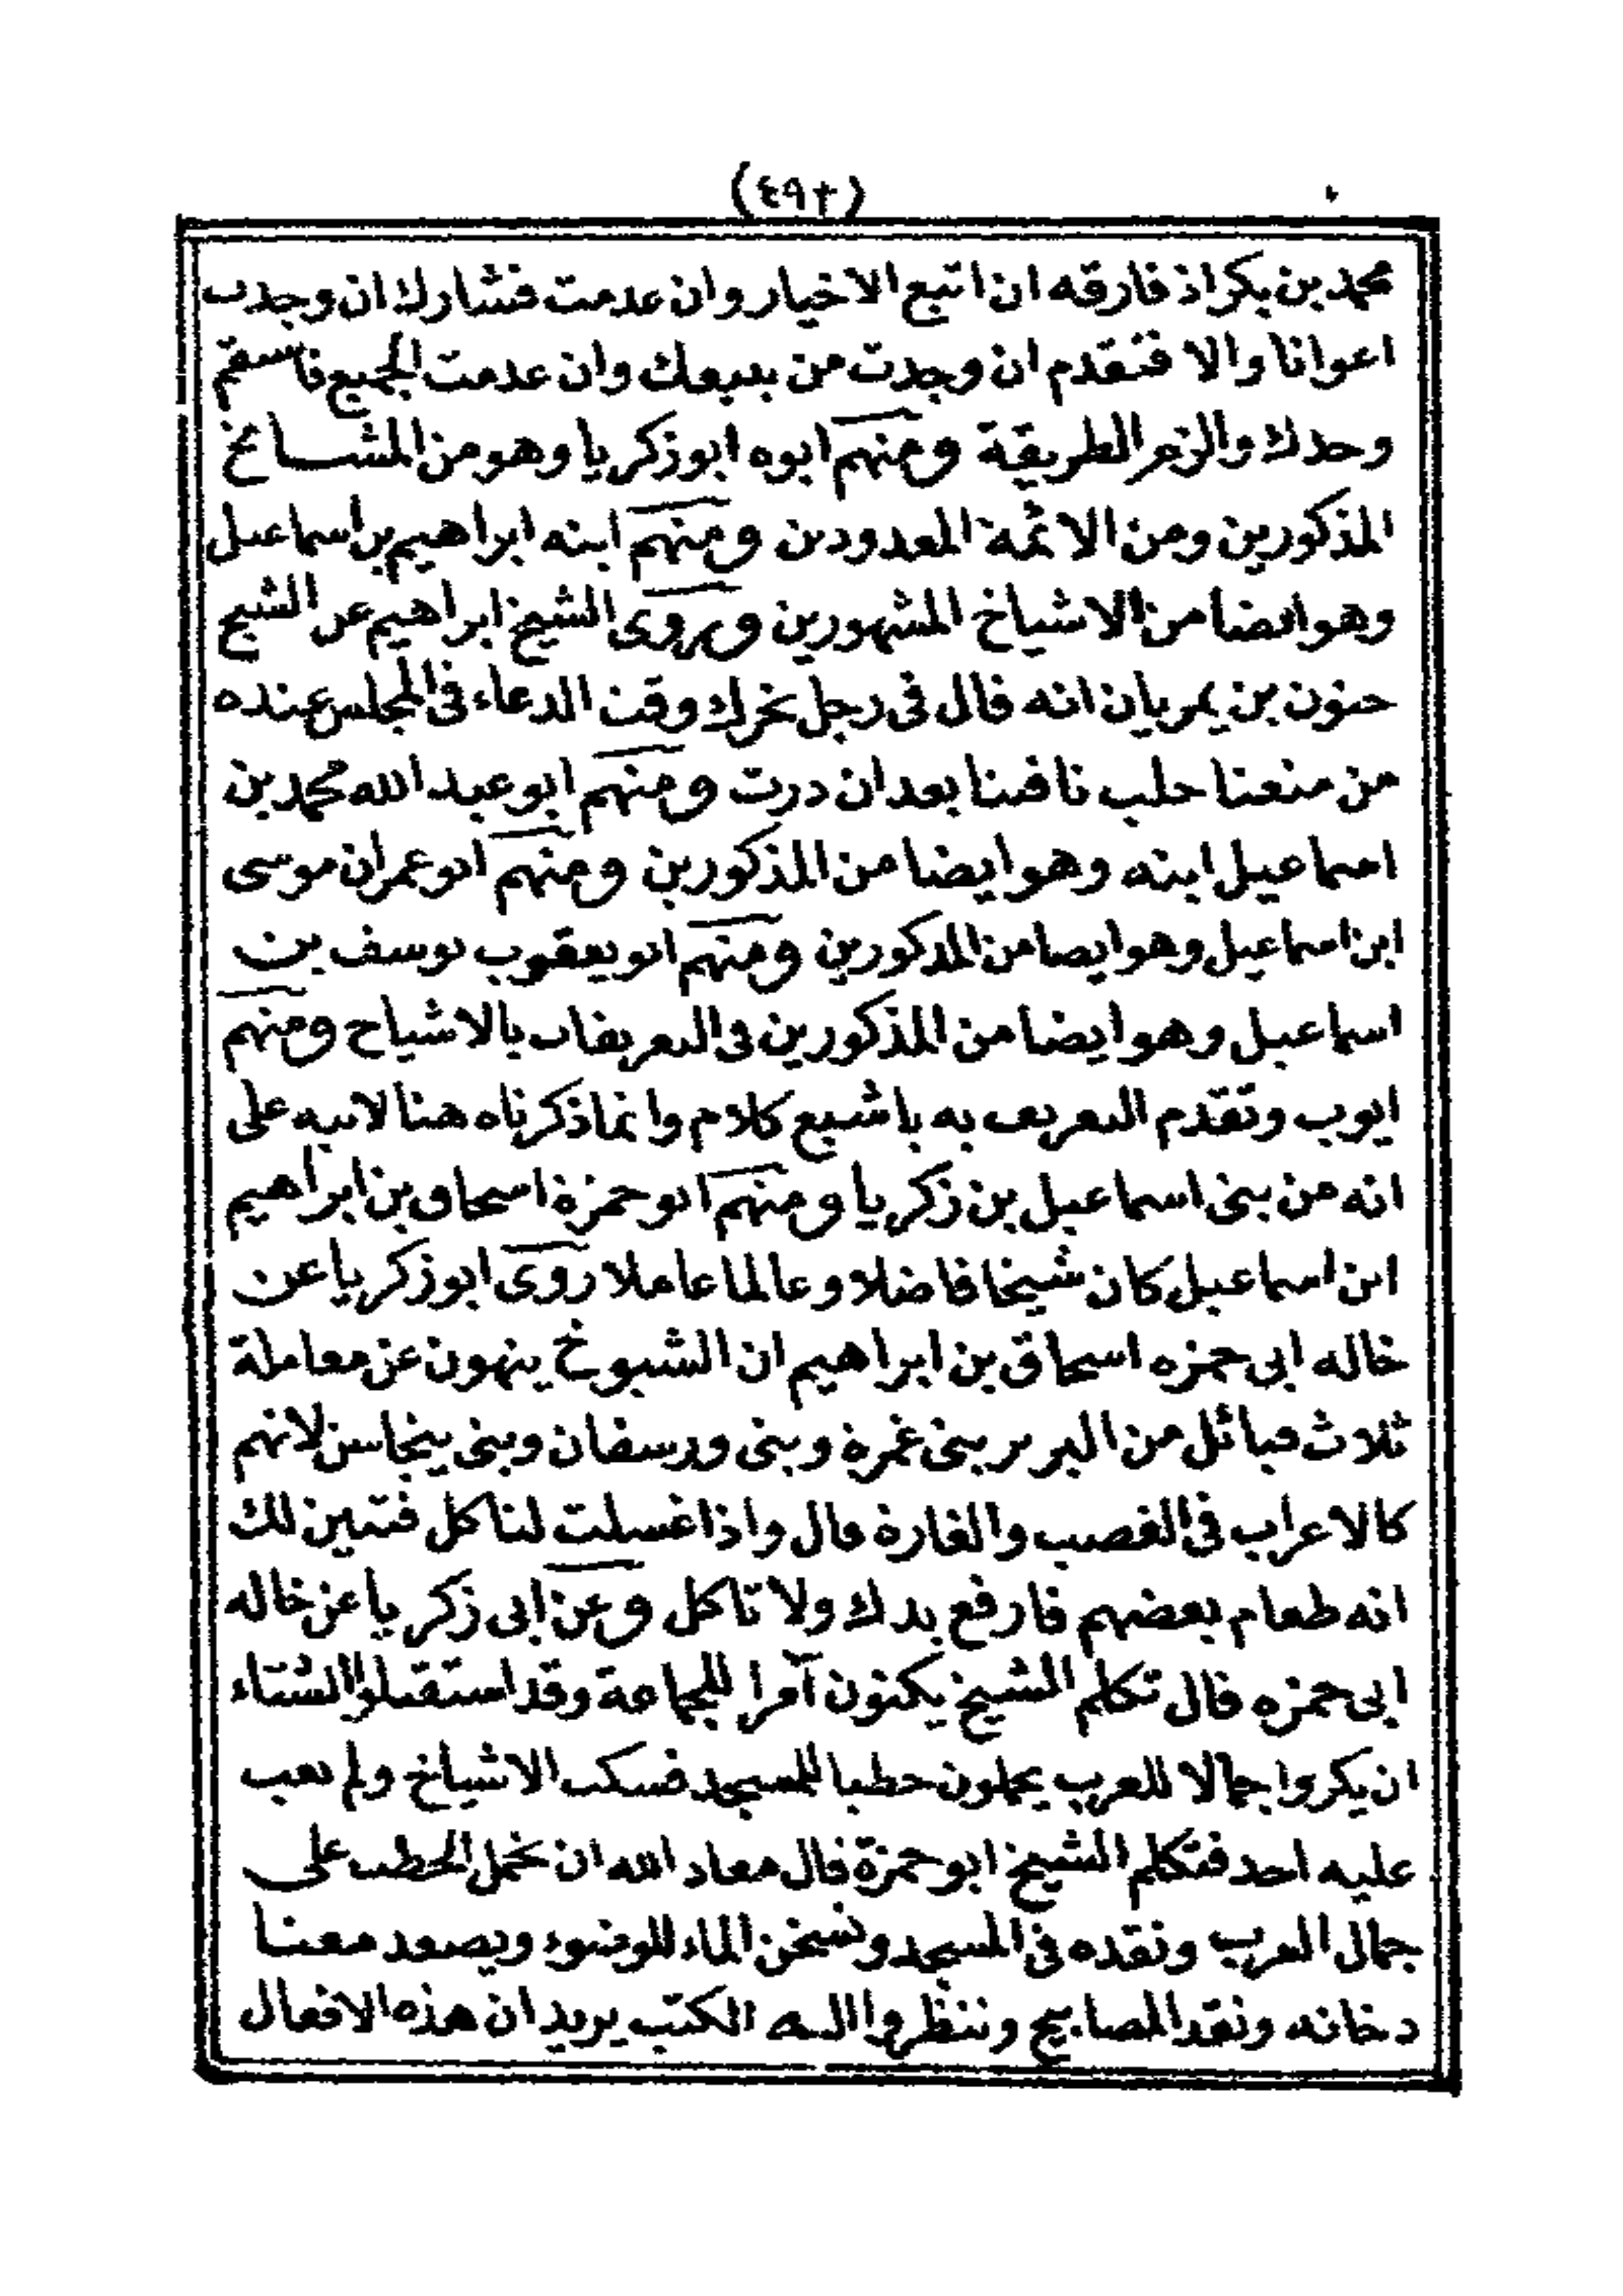 (٤٩٢)
محمد بن بكر اذ فارقه ان اتبع الاخيار وان عدمت فشارك ان وجدت
اعوانا والا فتقدم ان وجدت من يتبعك وان عدمت الجميع فاستقم
وحدك والزم الطريقة ومنهم ابوه ابو زكريا وهو من المشايخ
المذكورين ومن الائمة المعدودين ومنهم ابنه ابراهيم بن اسماعيل
وهو ايضا من الاشياخ المشهورين ويروى الشيخ ابراهيم عن الشيخ
حنون بن يمريان انه قال فى رجل تحرك وقت الدعاء فى المجلس عنده
من منعنا حلب ناقتنا بعد ان درت ومنهم ابو عبد الله محمد بن
اسماعيل ابنه وهو ايضا من المذكورين ومنهم ابو عمران موسى
ابن اسماعيل وهو ايضا من المذكورين ومنهم ابو يعقوب يوسف بن
اسماعيل وهو ايضا من المذكورين فى التعريفات بالاشياخ ومنهم
ايوب وتقدم التعريف به باشبع كلام وانما ذكرناه هنا لانبه على
انه من بنى اسماعيل بن زكريا ومنهم ابو حمزة اسحاق بن ابراهيم
ابن اسماعيل كان شيخا فاضلا وعالما عاملا روى ابو زكريا عن
خاله ابى حمزه اسحاق بن ابراهيم ان الشيوخ ينهون عن معاملة
ثلاث قبائل من البربر بنى غمرة وبنى ورسفان وبنى ينجاسن لانهم
كالاعراب فى الغصب والغارة قال واذا غسلت لتاكل فتبين لك
انه طعام بعضهم فارفع يدك ولا تاكل وعن ابى زكريا عن خاله
ابى حمزه قال تكلم الشيخ يكنون آمرا للجماعة وقد استقبلوا الشتاء
ان يكروا جمالا للعرب يحملون حطبا للمسجد فسكت الاشياخ ولم يعب
عليه احد فتكلم الشيخ ابو حمزة فقال معاد الله ان نحمل الحطب على
جمال العرب ونقده فى المسجد ونسخن الماء للوضوء ويصعد معنا
دخانه ونقد المصابيح وننظر والـه الكتب يريد ان هذه الافعال